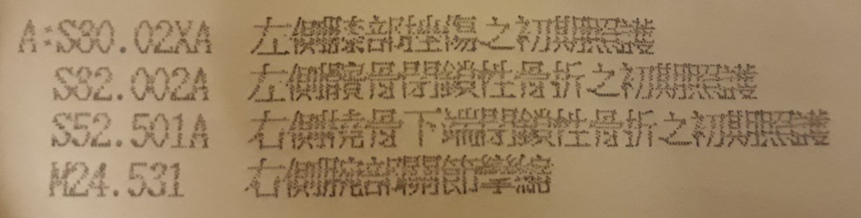 A:S80.02XA 左側膝部挫傷之初期照護
S82.002A 左側髕骨閉鎖性骨折之初期照護
S52.501A 右側橈骨下端閉鎖性骨折之初期照護
M24.531 右側腕部關節攣縮